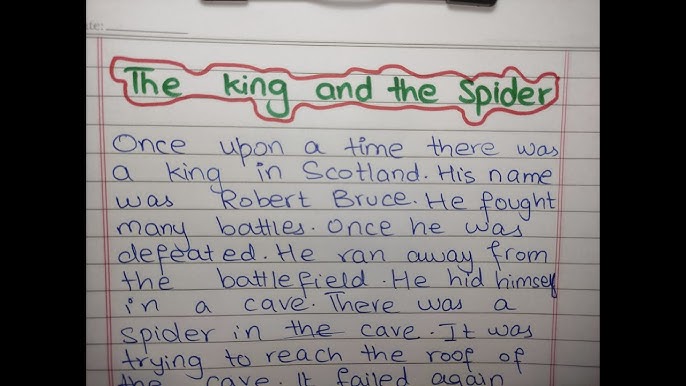 The king and the Spider
Once upon a time there was
a king in Scotland. His name
was Robert Bruce. He fought
many battles. Once he was
defeated. He ran away from
the battlefield. He hid himself
in a cave. There was a
spider in the cave. It was
trying to reach the roof of
the cave. It failed again